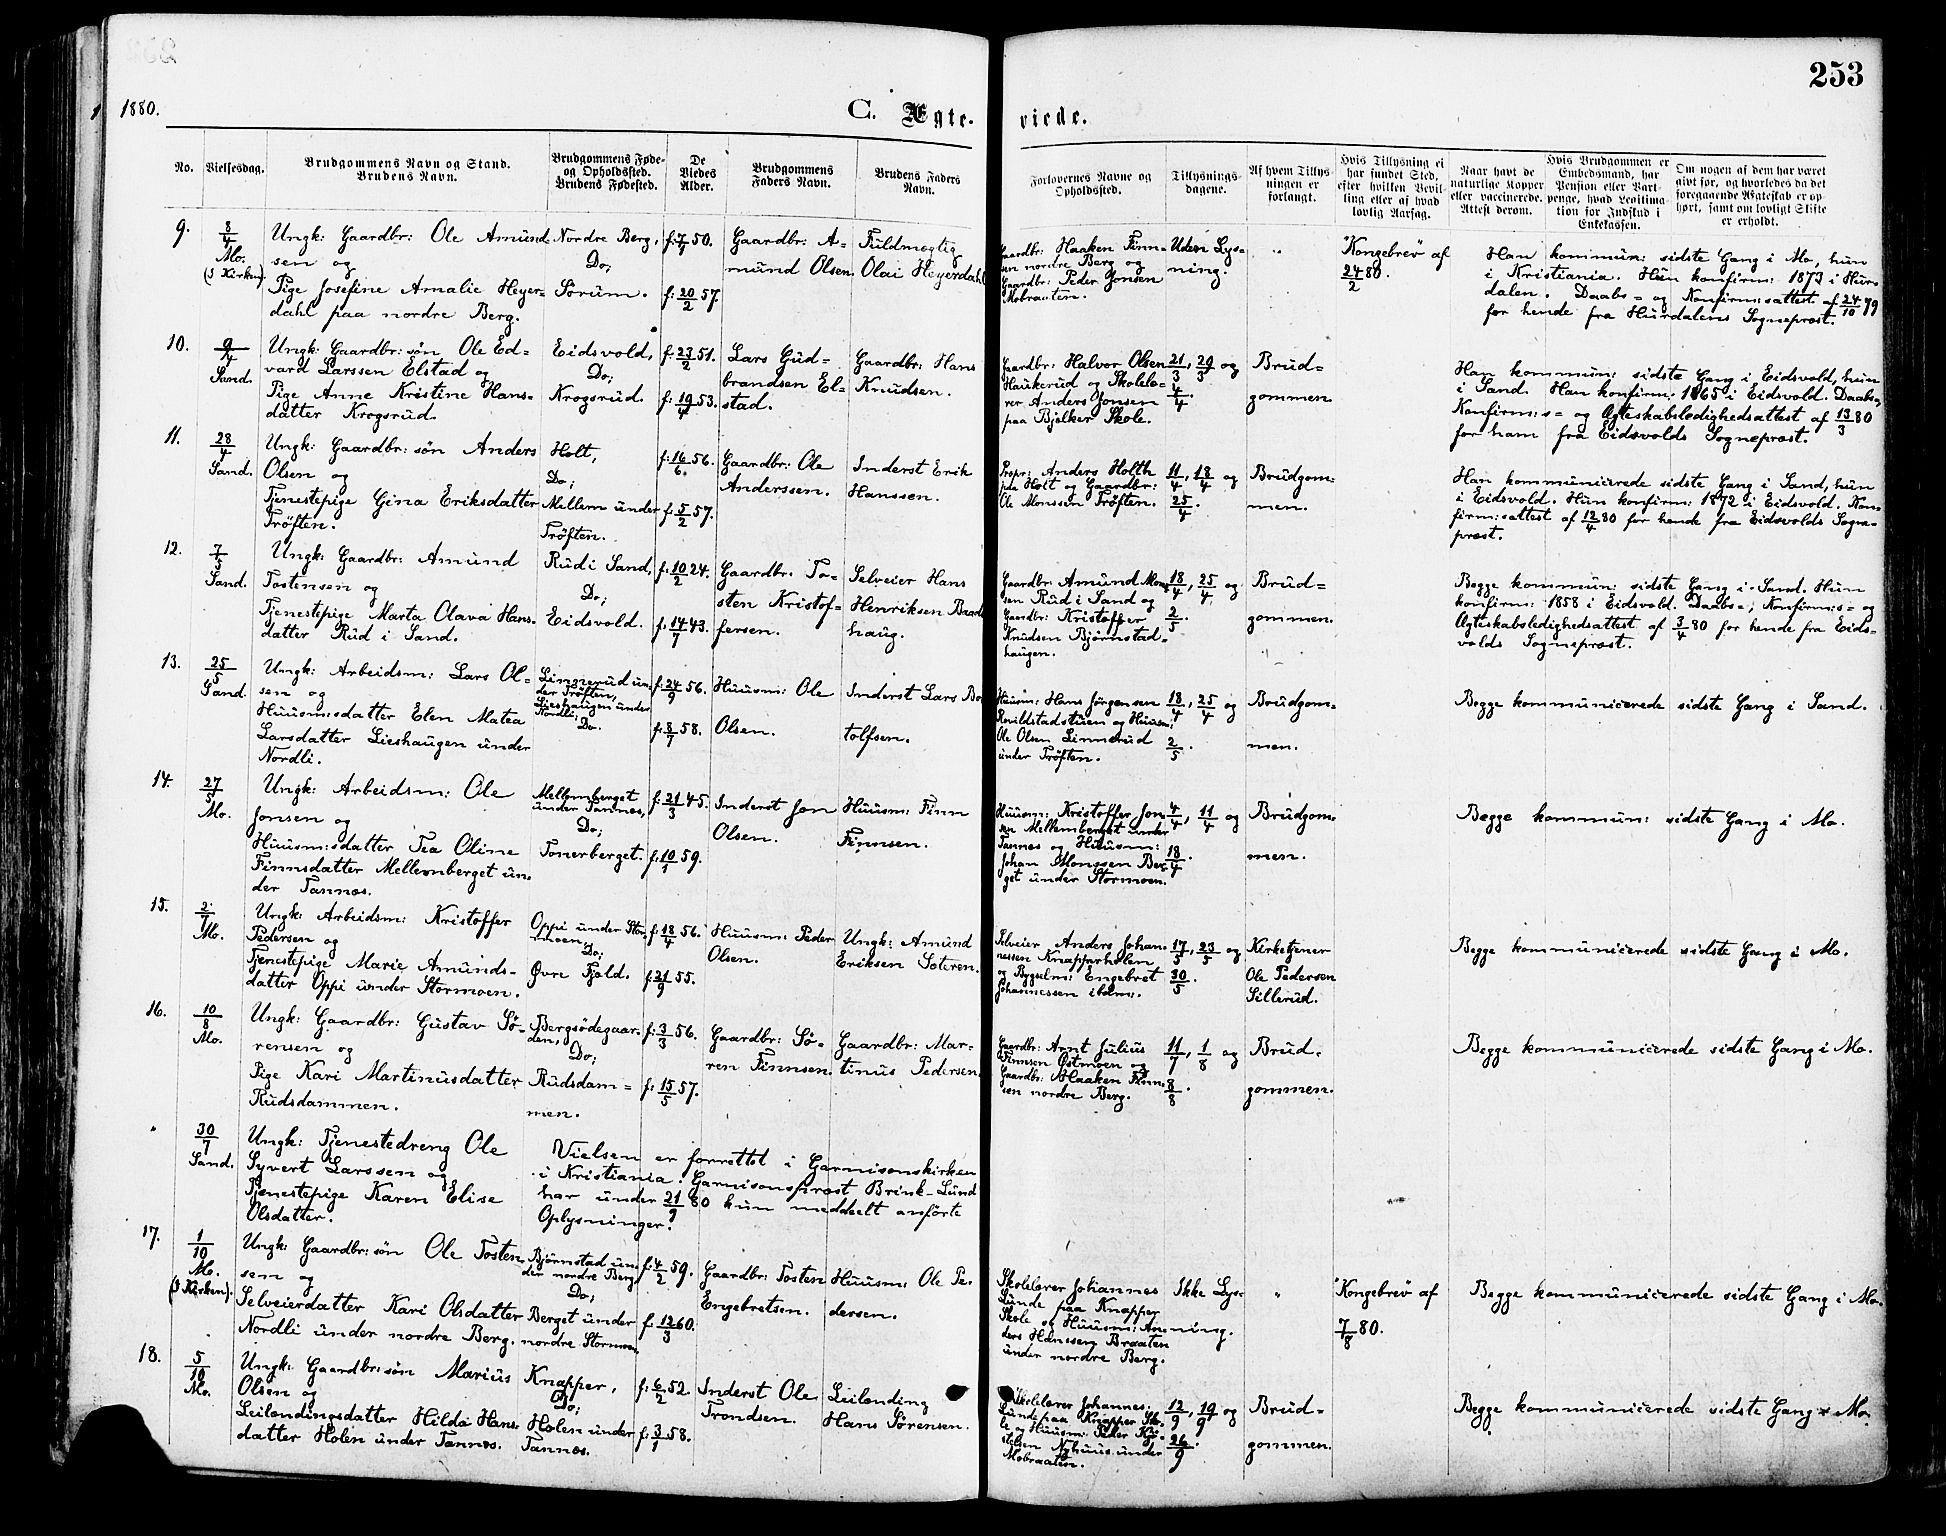 253
1880.
C. Ægte-
viede.
No.
Vielsesdag.
Brudgommens Navn og Stand.
Brudens Navn.
Brudgommens Føde-
og Opholdssted.
Brudens Fødested.
De
Viedes
Alder.
Brudgommens
Faders Navn.
Brudens Faders
Navn.
Forlovernes Navne og
Opholdssted.
Tillysnings-
dagene.
Af hvem Tillys-
ningen er
forlangt.
Hvis Tillysning ei
har fundet Sted,
efter hvilken Bevil-
ling eller af hvad
lovlig Aarsag.
Naar havt de
naturlige Kopper
eller vaccinerede.
Attest derom.
Hvis Brudgommen er
Embedsmand, har
Pension eller Vart-
penge, hvad Legitima-
tion for Indskud i
Enkekassen.
Om nogen af dem har været
givt før, og hvorledes da det
foregaaende Ægteskab er op-
hørt, samt om lovligt Skifte
er erholdt.
9.
8/4
Mo.
(I Kirken)
Ungk: Gaardbr: Ole Amund-
sen og
Pige Josefine Amalie Heyer-
dahl paa nordre Berg.
Nordre Berg,
Do;
Sørum.
f: 7/7 50.
f: 20/2 57.
Gaardbr: A-
mund Olsen.
Fuldmægtig
Olai Heyerdahl
Gaardbr: Haaken Finn-
sen nordre Berg og
Gaardbr: Peder Jonsen
Mobraaten.
Uden Lys-
ning.
"
Kongebrev af
24/2 80.
Han kommun: sidste Gang i Mo, hun
i Kristiania. Hun konfirm: 1873 i Hur-
dalen. Daabs- og Konfirm:sattest af 24/10 79
for hende fra Hurdalens Sognepræst.
10.
9/4
Sand.
Ungk: Gaardbr:søn Ole Ed-
vard Larssen Elstad og
Pige Anne Kristine Hans-
datter Krogsrud.
Eidsvold,
Do;
Krogsrud.
f: 23/2 51.
f: 19/4 53.
Lars Gud-
brandsen El-
stad.
Gaardbr: Hans
Knudsen.
Gaardbr: Halvor Olsen
Haukerud og Skolelæ-
rer Anders Jonsen
paa Bjelker Skole.
21/3, 29/3 og
4/4.
Brud-
gommen
Han kommun: sidste Gang i Eidsvold, hun
i Sand. Han konfirm: 1865 i Eidsvold. Daabs-,
Konfirm:s- og Ægteskabsledighedsattest af 13/3 80
for ham fra Eidsvolds Sognepræst.
11.
28/4
Sand.
Ungk: Gaardbr:søn Anders
Olsen og
Tjenestepige Gina Eriksdatter
Trøften.
Holt,
Do;
Mellem under
Trøften.
f: 16/6 56.
f: 5/2 57.
Gaardbr: Ole
Anderssen.
Inderst Erik
Hanssen.
Propr: Anders Holth
paa Holt og Gaardbr:
Ole Monssen Trøften.
11/4, 18/4 og
25/4.
Brudgom-
men.
Han kommunicerede sidste Gang i Sand, hun
i Eidsvold. Hun konfirm: 1872 i Eidsvold. Kon-
firm:sattest af 12/4 80 for hende fra Eidsvolds Sogne-
præst.
12.
7/5
Sand.
Ungk: Gaardbr: Amund
Tostensen og
Tjenestepige Marta Olava Hans-
datter Rud i Sand.
Rud i Sand,
Do;
Eidsvold.
f: 10/2 24.
f: 14/7 43.
Gaardbr: To-
sten Kristof-
fersen.
Selveier Hans
Henriksen Baard-
haug.
Gaardbr: Amund Mon-
sen Rud i Sand og
Gaardbr: Kristoffer
Knudsen Bjørnstad-
haugen.
18/4, 25/4 og
2/5.
Brud-
gommen.
Begge kommun: sidste Gang i Sand. Hun
konfirm: 1858 i Eidsvold. Daabs-, Konfirm:s- og
Ægteskabsledighedsattest af 3/4 80 for hende fra Eids-
volds Sognepræst.
13.
25/5
Sand.
Ungk: Arbeidsm: Lars Ol-
sen og
Huusm:sdatter Elen Matea
Larsdatter Lieshaugen under
Nordli.
Linnerud un-
der Trøften,
Lieshaugen under
Nordli;
Do.
f: 24/9 56.
f: 8/7 58.
Huusm: Ole
Olsen.
Inderst Lars Bo-
tolfsen.
Huusm: Hans Jørgensen
Ravildstadstuen og Huusm:
Ole Olsen Linnerud
under Trøften.
18/4, 25/4 og
2/5.
Brudgom-
men.
Begge kommunicerede sidste Gang i Sand.
14.
27/5
Mo.
Ungk: Arbeidsm: Ole
Jonsen og
Huusm:sdatter Tea Oline
Finnsdatter Mellemberget un-
der Tannæs.
Mellemberget
under Tannæs,
Do;
Tonerberget.
f: 21/3 45.
f: 10/1 59.
Inderst Jon
Olsen.
Huusm: Finn
Finnsen.
Huusm: Kristoffer Jon-
sen Mellemberget under
Tannæs og Huusm:
Johan Monssen Ber-
get under Stormoen.
4/4, 11/4 og
18/4.
Brudgom-
men.
Begge kommun: sidste Gang i Mo.
15.
2/7
Mo.
Ungk: Arbeidsm: Kristoffer
Pedersen og
Tjenestepige Marie Amunds-
datter Oppi under Stormoen.
Oppi under Stor-
moen,
Do;
Øvre Fjeld.
f: 18/4 56.
f: 21/9 55.
Huusm: Peder
Olsen.
Ungk: Amund
Eriksen Soteren.
Selveier Anders Johan-
nessen Knapperholen
og Bygselm: Engebret
Johannessen ibdm:.
17/5, 23/5 og
30/5.
Kirketjener
Ole Pedersen
Sillerud.
Begge kommunicerede sidste Gang i Mo.
16.
10/8
Mo.
Ungk: Gaardbr: Gustav Sø-
rensen og
Pige Kari Martinusdatter
Rudsdammen.
Bergsødegaar-
den,
Do;
Rudsdam-
men.
f: 3/3 56.
f: 15/5 57.
Gaardbr: Sø-
ren Finnsen.
Gaardbr: Mar-
tinus Pedersen.
Gaardbr: Arnt Julius
Finnsen Østmoen og
Gaardbr: Haaken Finn-
sen nordre Berg.
11/7, 1/8 og
8/8.
Brud-
gommen.
Begge kommunicerede sidste Gang i Mo.
"
30/7
Sand.
Ungk: Tjenestedreng Ole
Syvert Larssen og
Tjenestepige Karen Elise
Olsdatter.
Vielsen er forrettet i Garnisonskirken
i Kristiania. Garnisonsprest Brink-Lund
har under 21/9 80 kun meddeelt anførte
Oplysninger.
17.
1/10
Mo.
(I Kirken).
Ungk: Gaardbr:søn Ole Tosten-
sen og
Selveierdatter Kari Olsdatter
Nordli under nordre Berg.
Bjørnstad un-
der nordre Berg,
Do;
Berget under
nordre Stormoen.
f: 4/2 59.
f: 12/3 60.
Gaardbr: Tosten
Engebretsen.
Huusm: Ole Pe-
dersen.
Skolelærer Johannes
Lunde paa Knapper
Skole og Huusm: An-
ders Hanssen Braaten
under nordre Berg.
Ikke Lys-
ning.
"
Kongebrev af
7/8 80.
Begge kommunicerede sidste Gang i Mo.
18.
5/10
Mo.
Ungk: Gaardbr:søn Marius
Olsen og
Leilendingsdatter Hilda Hans-
datter Holen under Tannæs.
Knapper,
Do;
Holen under
Tannæs.
f: 6/2 52.
f: 3/1 58.
Inderst Ole
Trondsen.
Leilending
Hans Sørensen.
Skolelærer Johannes
Lunde paa Knapper Sko-
le og Huusm: Peder
Nyhuus under
Mobraaten.
12/9, 19/9 og
26/9.
Brud-
gommen.
Begge kommunicerede sidste Gang i Mo.